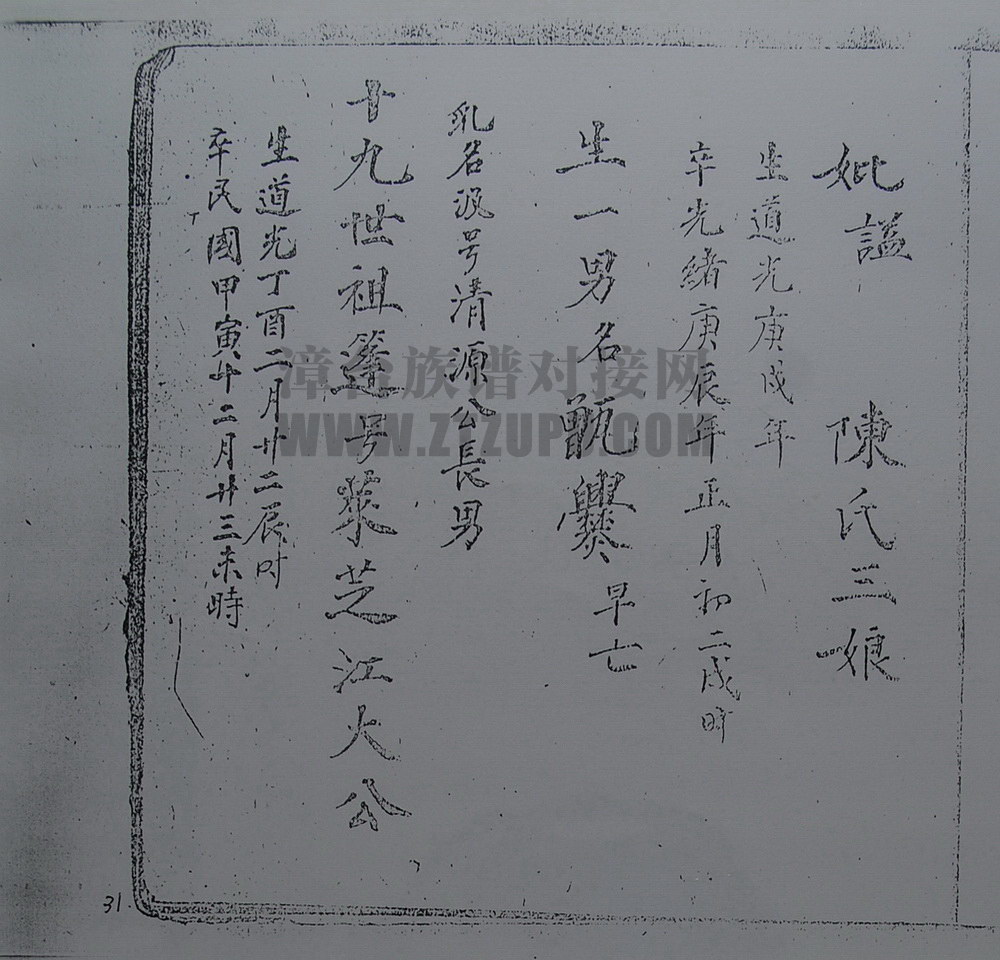 妣謚 陳氏三娘
生道光庚戌年
卒光緒庚辰年正月初二戌時
生一男名甑爨早亡
乳名汲号清源公長男
十九世祖篷号萊芝江大公
生道光丁酉二月廿二辰时
卒民國甲寅年十二月廿三未時
漳台族谱对接网
WWW.ZTZUPU.COM
31